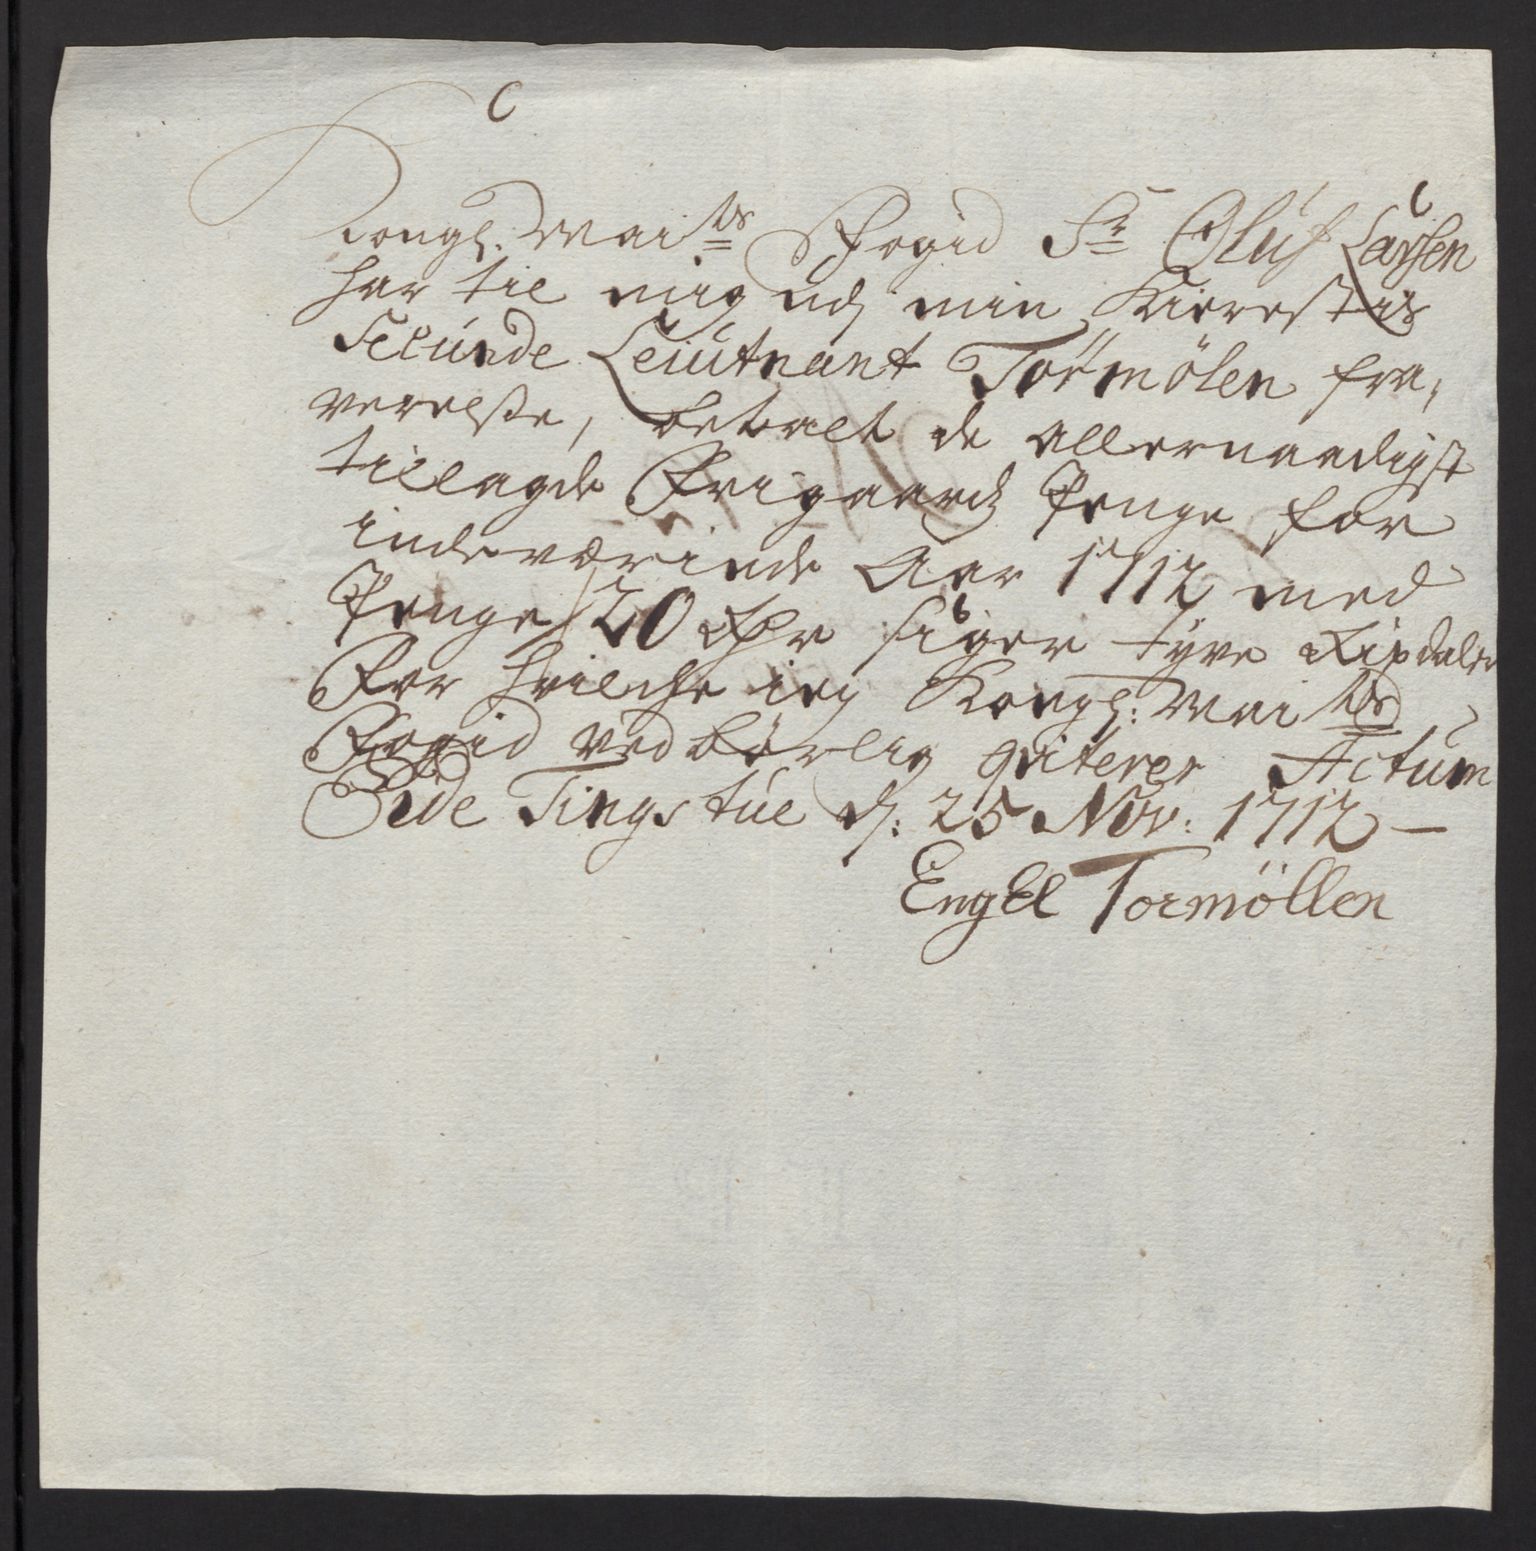 C
Kongl: Maits Fogid Sr Oluf Larsen
har til mig udj min Kierestis
Secunde Leiutnant Tormölen fra,
verelße, betalt de allernaadigst
tillagde Frigaards Penge for
indeværinde Aar 1712 med
Penge 20 Rdr siger tyve Rixdaler
For hvilche ieg Kongl: Maits
Fogid vedbörlig qviterer Actum
Eide Tingstue d: 25 Nov: 1712 –
Engel Tormöllen